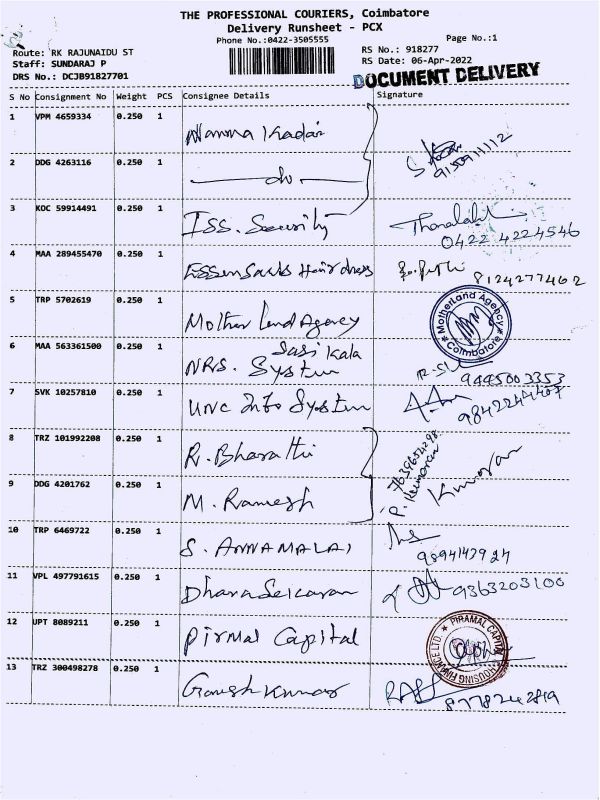 THE PROFESSIONAL COURIERS, Coimbatore
Delivery Runsheet - PCX
Phone No.:0422-3505555
Page No.:1
Route: RK RAJUNAIDU ST
RS No.: 918277
Staff: SUNDARAJ P
RS Date: 06-Apr-2022
DRS No.: DCJB91827701
DOCUMENT DELIVERY
S No Consignment No Weight PCS Consignee Details Signature
1 VPM 4659334 0.250 1 Namma Kadai
9150911112
2 DDG 4263116 0.250 1 do
3 KOC 59914491 0.250 1 ISS. Security
0422 4224546
4 MAA 289455470 0.250 1 8124277462
5 TRP 5702619 0.250 1 Mother Land Agency
MotherLand Agency
Coimbatore
6 MAA 563361500 0.250 1 Sasikala
NRS. System
9445003353
7 SVK 10257810 0.250 1 UNC Info System
8 TRZ 101992208 0.250 1 R. Bharathi
P. Kumaran Kumaran
9 DDG 4201762 0.250 1 M. Ramesh
10 TRP 6469722 0.250 1 S. ANNAMALAI
9894143924
11 VPL 497791615 0.250 1 Dhanasekaran 9363203100
12 UPT 8089211 0.250 1 Pirmal Capital
PIRAMAL CAPITAL
HOUSING FINANCE LTD.
13 TRZ 300498278 0.250 1 Ganesh Kumar
8778242819